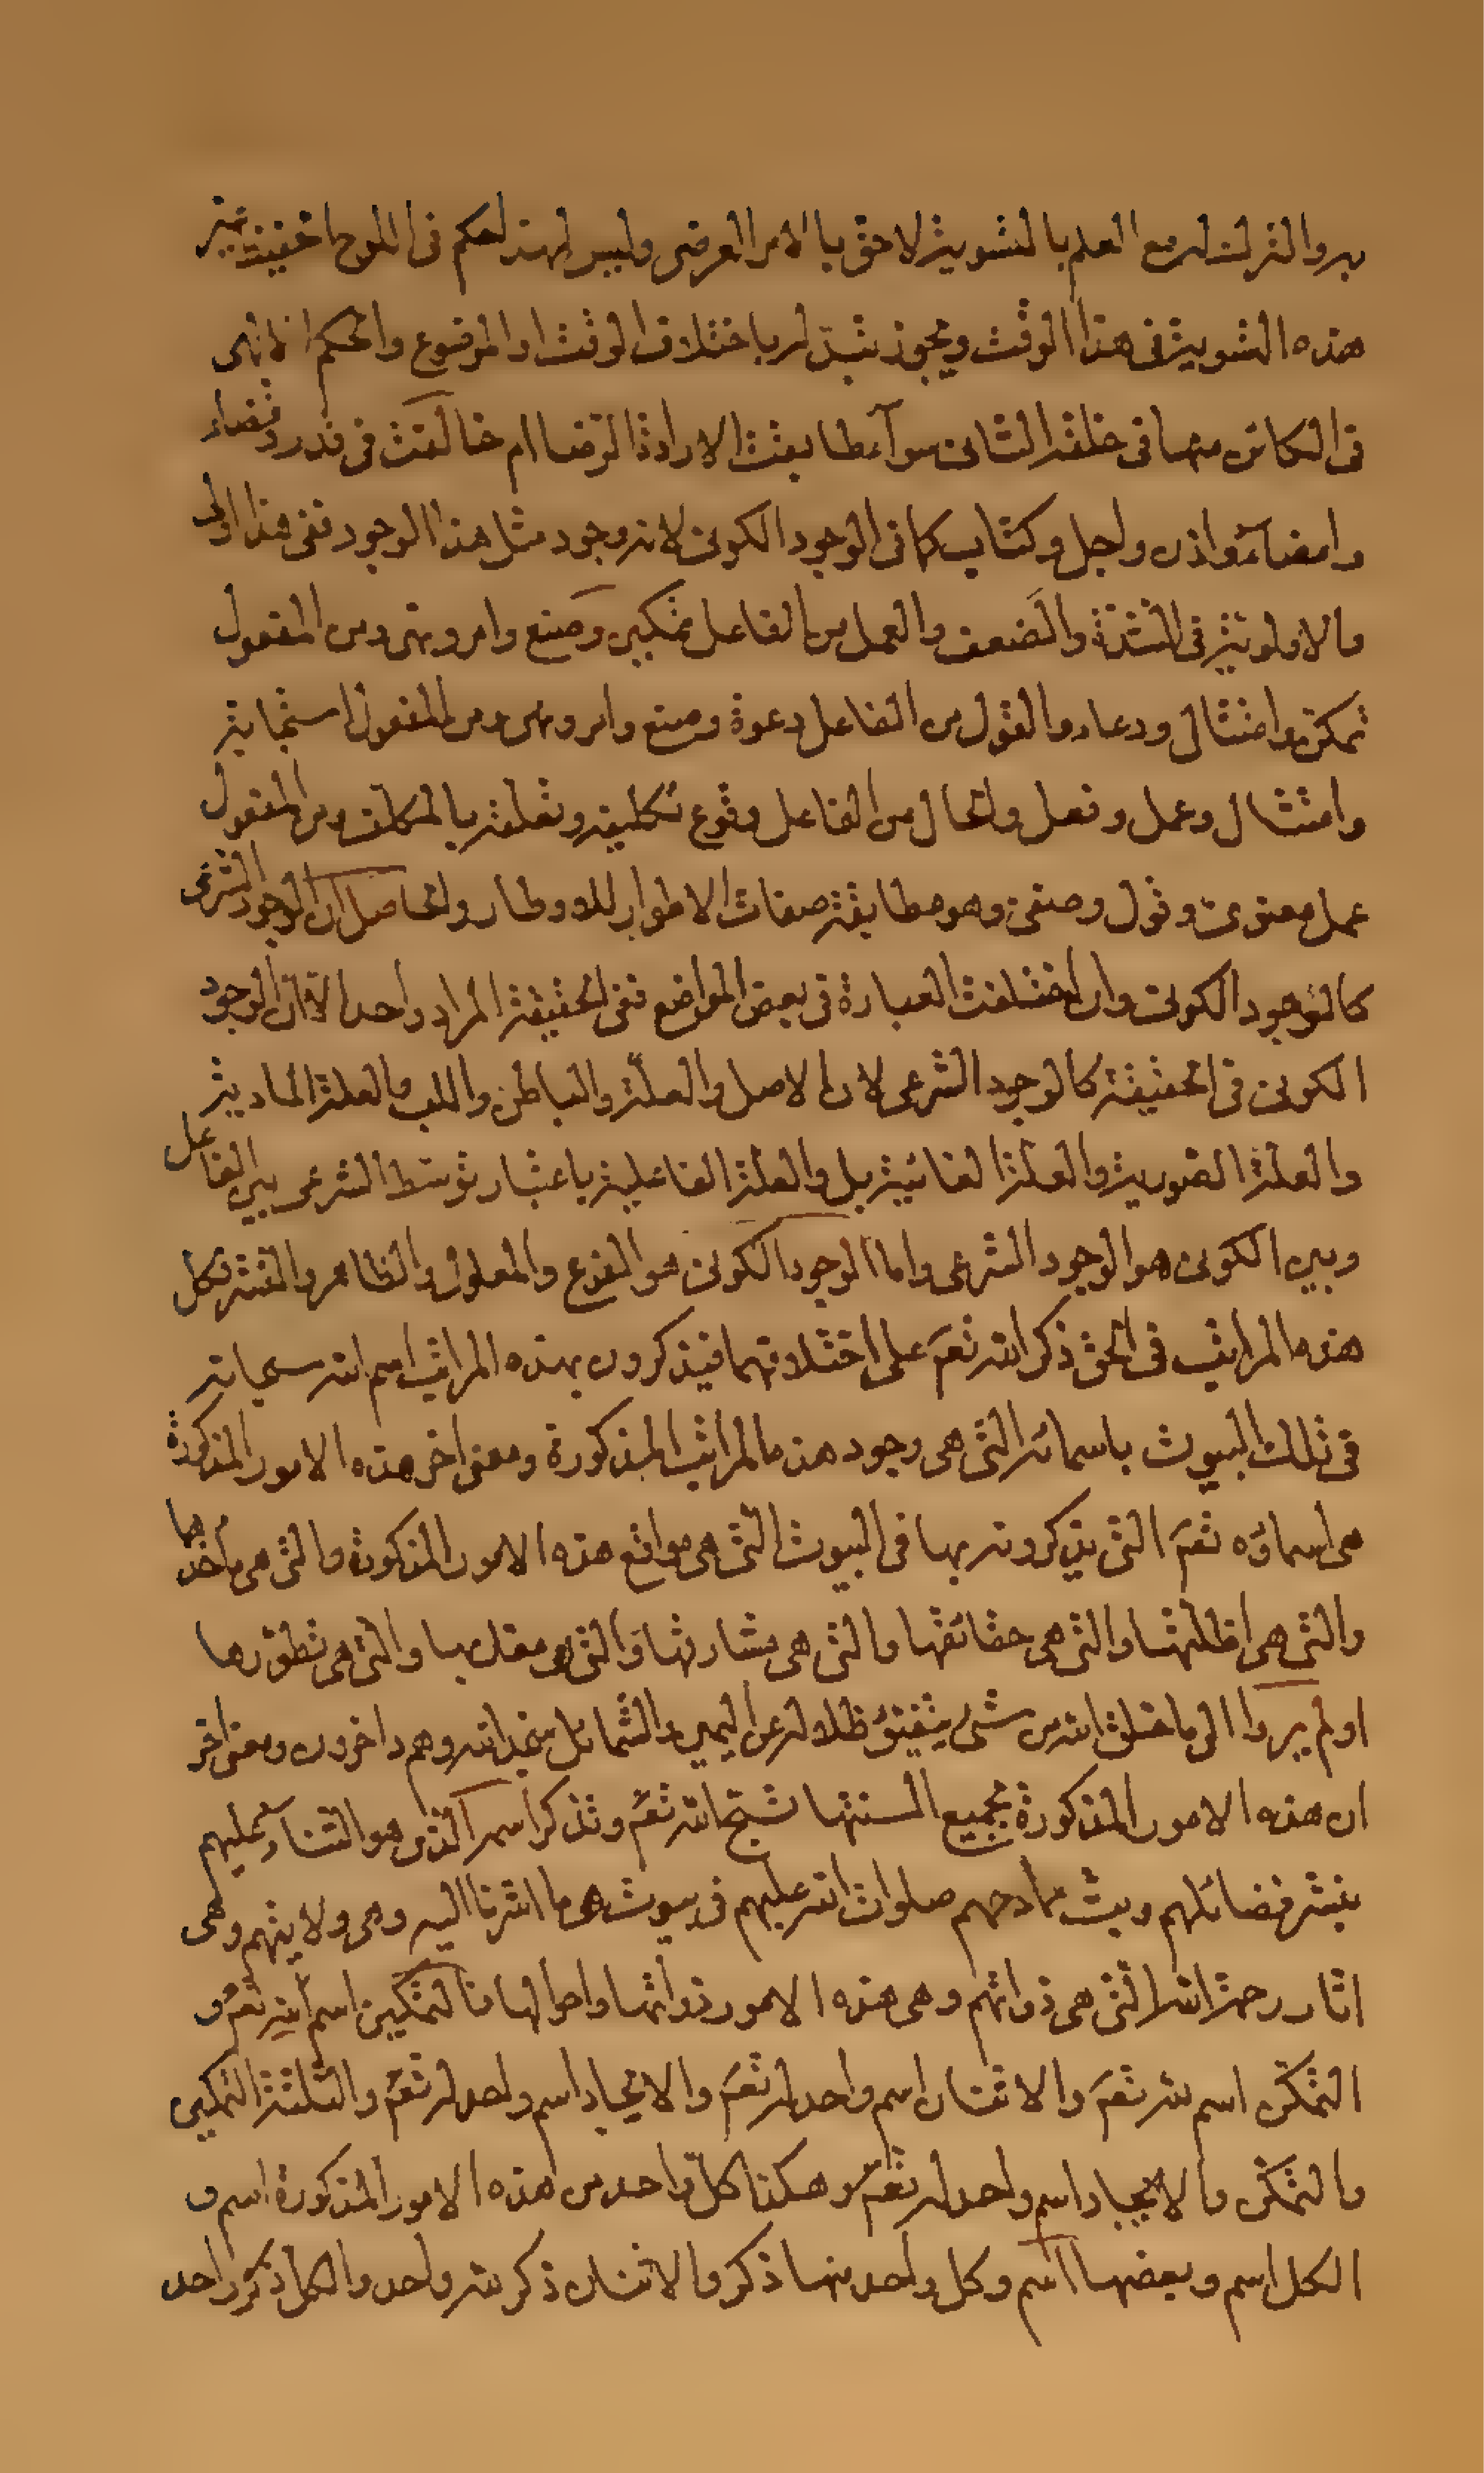 به والترك له مع العلم بالتسوية لاحق بالامر العرضى وليس لهذا حكم فى اللوح ما خفيت غير
هذه التسوية فى هذا الوقت ويجوز تبدله باختلاف الوقت او الموضوع والحكم الالهى
فى الكائن منها فى خلقه الثانى سوآء طابقت الارادة الرضا ام خالفت فى قدر وقضاء
وامضاء واذن واجل وكتاب كما فى الوجود الكونى لانه وجود مثل هذا الوجود ففى هذا اولى
والاولوية فى الشدة والضعف والعمل من الفاعل تمكين وصنع وامر ونهى ومن المفعول
تمكن وامتثال ودعاء والقول من الفاعل دعوة وصنع وامر ونهى ومن المفعول استجابة
وامتثال وعمل وفعل والحال من الفاعل وقوع تكليفه وتعلقه بالمكلف ومن المفعول
عمل معنوى وقول وصفى وهو مطابقة صفات الاطوار للاوطار والحاصل ان الوجود الشرعى
كالوجود الكونى وان اختلفت العبارة فى بعض المواضع ففى الحقيقة المراد واحد الا ان الوجود
الكونى فى الحقيقة كالوجود الشرعى لان الاصل والعلة والباطن واللب والعلة المادية
والعلة الصورية والعلة الغائية بل والعلة الفاعلية باعتبار توسط الشرعى بين الفاعل
وبين الكونى هو الوجود الشرعى واما الوجود الكونى هو الفرع والمعلول والظاهر والقشر فكل
هذه المراتب فى الحق ذكر الله تعم على اختلافها فيذكرون بهذه المراتب اسم الله سبحانه
فى تلك البيوت باسمائه التى هى وجود هذه المراتب المذكورة ومعنى اخر هذه الامور المذكورة
هى اسماؤه تعم التى يذكرونه بها فى البيوت التى هى مواقع هذه الامور المذكورة والتى هى مأخذها
والتى هى اظلتها والتى هى حقائقها والتى هى مشارفها والتى هى مقلبها والتى هى تطورها
اولم يروا الى ما خلق الله من شىء يتفيؤ ظلاله عن اليمين والشمائل سجدا لله وهم داخرون ومعنى اخر
ان هذه الامور المذكورة بجميع السنتها تسبح الله تعم وتذكر اسمه الذى هو الثنآء عليهم
بنشر فضائلهم وبث ممادحهم صلوات الله عليهم فى بيوت هى ما اشرنا اليه وهى ولايتهم وهى
اثار رحمة الله التى هى ذواتهم وهى هذه الامور ذواتها واحوالها فالتمكين اسم لله تعم و
التمكن اسم لله تعم والاثنان اسم واحد له تعم والايجاد اسم واحد له تعم والثلثة التمكين
والتمكن والايجاد اسم واحد له تعم وهكذا كل واحد من هذه الامور المذكورة اسم و
الكل اسم وبعضها اسم وكل واحد منها ذكر والاثنان ذكر لله واحد والكل ذكر واحد